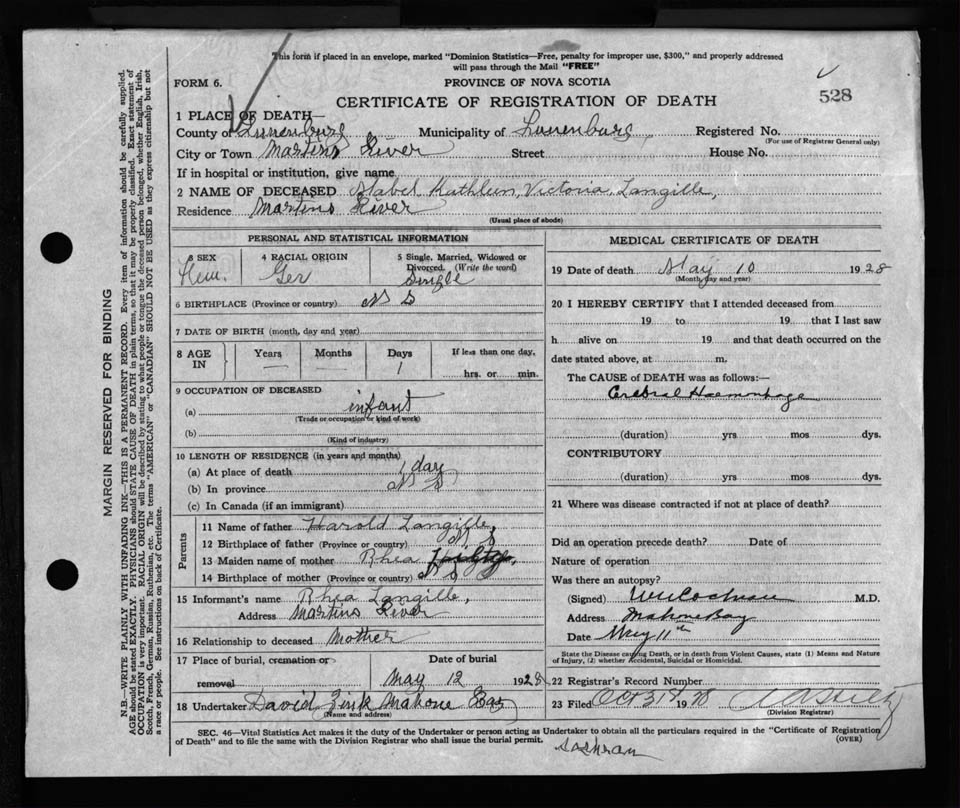 This form if placed in an envelope, marked "Dominion Statistics—Free, penalty for improper use, $300," and properly addressed
will pass through the Mail "FREE"
FORM 6.
PROVINCE OF NOVA SCOTIA
528
CERTIFICATE OF REGISTRATION OF DEATH
1 PLACE OF DEATH—
County of Lunenburg Municipality of Lunenburg Registered No.
(For use of Registrar General only)
City or Town Martins River Street House No.
If in hospital or institution, give name
2 NAME OF DECEASED Mabel Kathleen, Victoria, Langille,
Residence Martins River
(Usual place of abode)
PERSONAL AND STATISTICAL INFORMATION
3 SEX 4 RACIAL ORIGIN 5 Single, Married, Widowed or
Divorced. (Write the word)
Fem. Ger Single
6 BIRTHPLACE (Province or country) N S
7 DATE OF BIRTH (month, day and year)
8 AGE IN Years Months Days If less than one day,
— — 1 hrs. or min.
9 OCCUPATION OF DECEASED
(a) infant
(Trade or occupation or kind of work)
(b)
(Kind of industry)
10 LENGTH OF RESIDENCE (in years and months)
(a) At place of death 1 day
(b) In province N S
(c) In Canada (if an immigrant)
Parents
11 Name of father Harold Langille,
12 Birthplace of father (Province or country) N S
13 Maiden name of mother Rhia
14 Birthplace of mother (Province or country) N S
15 Informant's name Rhia Langille,
Address Martins River
16 Relationship to deceased Mother
17 Place of burial, cremation or removal Date of burial
May 12 1928
18 Undertaker David Zink Mahone Bay
(Name and address)
MEDICAL CERTIFICATE OF DEATH
19 Date of death May 10 1928
(Month, day and year)
20 I HEREBY CERTIFY that I attended deceased from
19 to 19 that I last saw
h alive on 19 and that death occurred on the
date stated above, at m.
The CAUSE of DEATH was as follows:—
Cerebral Haemorrhage
(duration) yrs mos dys.
CONTRIBUTORY
(duration) yrs mos dys.
21 Where was disease contracted if not at place of death?
Did an operation precede death? Date of
Nature of operation
Was there an autopsy?
(Signed) Cochran M.D.
Address Mahone Bay
Date May 11th
State the Disease causing Death, or in death from Violent Causes, state (1) Means and Nature
of Injury, (2) whether Accidental, Suicidal or Homicidal.
22 Registrar's Record Number
23 Filed Oct 31st 1928
(Division Registrar)
SEC. 46—Vital Statistics Act makes it the duty of the Undertaker or person acting as Undertaker to obtain all the particulars required in the "Certificate of Registration
of Death" and to file the same with the Division Registrar who shall issue the burial permit.
(OVER)
Cochran
MARGIN RESERVED FOR BINDING
N.B.—WRITE PLAINLY WITH UNFADING INK—THIS IS A PERMANENT RECORD. Every item of information should be carefully supplied.
AGE should be stated EXACTLY. PHYSICIANS should STATE CAUSE OF DEATH in plain terms, so that it may be properly classified. Exact statement of
OCCUPATION is very important. RACIAL ORIGIN will be described by stating to what people or tongue the deceased person belonged, whether English, Irish,
Scotch, French, German, Russian, Ruthenian, etc. The terms "AMERICAN" or "CANADIAN" SHOULD NOT BE USED as they express citizenship but not
a race or people. See instructions on back of Certificate.